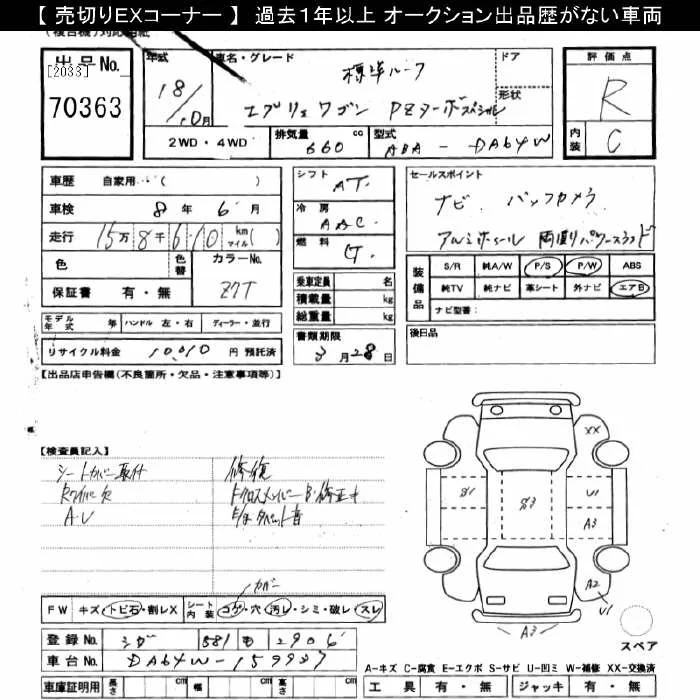 【 売切りEXコーナー 】 過去1年以上 オークション出品歴がない車両
出品No. [2033] 70363
年式 18/10月
車名・グレード 標準ルーフ
エブリィ ワゴン PZターボスペシャル
ドア
形状
評価点 R
内装 C
2WD・4WD
排気量 660 cc
型式 ABA - DA64W
車歴 自家用 ( )
車検 8年 6月
走行 15万8千610 km マイル( )
色
色替
カラーNo. Z7T
保証書 有・無
シフト AT
冷房 AAC
燃料 G
乗車定員 名
積載量 kg
総重量 kg
セールスポイント
ナビ バックカメラ
アルミホイール 両側パワースライド
装備品 S/R 純A/W P/S P/W ABS
純TV 純ナビ 革シート 外ナビ エアB
ナビ型番:
モデル年式 年 ハンドル 左・右 ディーラー・並行
リサイクル料金 10,010 円 預託済
書類期限 3月28日
後日品
【出品店申告欄(不良箇所・欠品・注意事項等)】
【検査員記入】
シートカバー取付 修復
Rワイパー欠 Fクロスメンバー B・修正キ
A・U E/g タペット音
カバー
FW キズ・トビ石・割レX シート内装 コゲ・穴・汚レ・シミ・破レ・スレ
登録No. シガ 581 も 2906
車台No. DA64W-159927
車庫証明用 長さ cm 幅 cm 高さ cm
XX
S1 S3 U1
A3
A2
U1
A3
スペア
A-キズ C-腐食 E-エクボ S-サビ U-凹ミ W-補修 XX-交換済
工具 有・無 ジャッキ 有・無